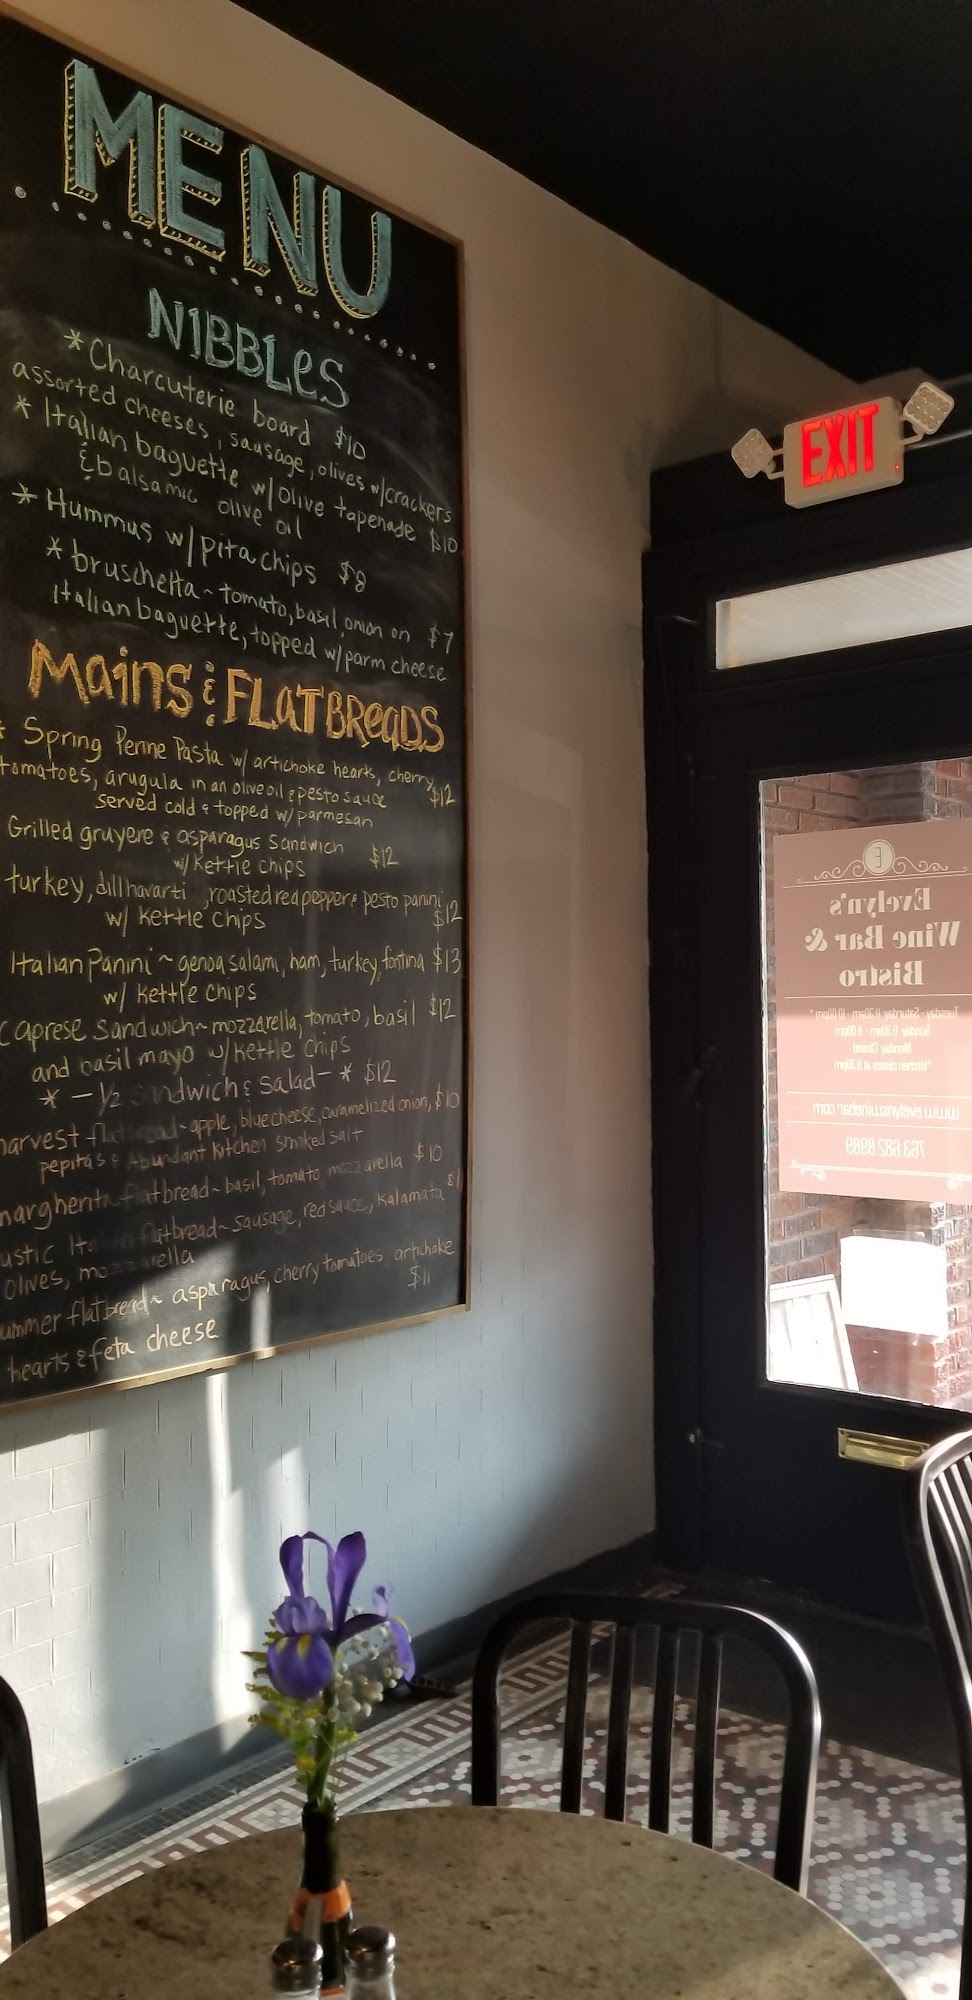 MENU
NIBBLES
* Charcuterie board $10
assorted cheeses, sausage, olives w/crackers
* Italian baguette w/ Olive tapenade $10
& balsamic olive oil
* Hummus w/ pita chips $8
* bruschetta ~ tomato, basil, onion on $7
Italian baguette, topped w/parm cheese
Mains & FLATBReaDS
* Spring Penne Pasta w/ artichoke hearts, cherry
tomatoes, arugula in an olive oil & pesto sauce $12
served cold & topped w/ parmesan
Grilled gruyere & asparagus sandwich $12
w/ Kettle chips
turkey, dill havarti, roasted red pepper & pesto panini
w/ kettle chips $12
Italian Panini ~ genoa salami, ham, turkey, fontina $13
w/ kettle chips
Caprese Sandwich ~ mozzarella, tomato, basil $12
and basil mayo w/ kettle chips
* - 1/2 sandwich & salad - * $12
harvest flatbread ~ apple, blue cheese, caramelized onion, $10
pepitas & Abundant Kitchen smoked salt
marghenta flatbread ~ basil, tomato, mozzarella $10
ustic Italian flatbread ~ sausage, red sauce, kalamata
olives, mozzarella
ummer flatbread ~ asparagus, cherry tomatoes, artichoke
hearts & feta cheese $11
EXIT
E
Evelyn's
Wine Bar &
Bistro
Tuesday - Saturday 11:30am - 10:00pm *
Sunday 11:30am - 8:00pm
Monday Closed
*kitchen closes at 9:30pm
www.evelynswinebar.com
763.682.8989